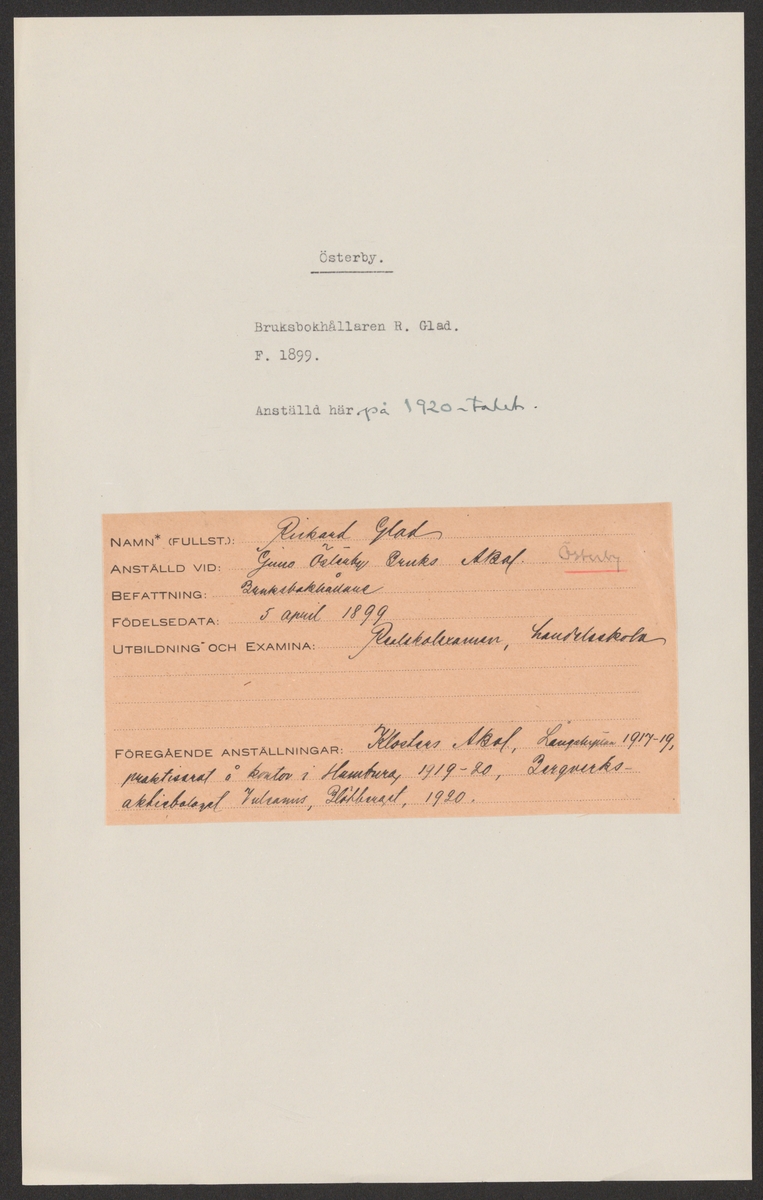 Österby.
Bruksbokhållaren R. Glad.
F. 1899.
Anställd här på 1920-talet.
NAMN* (FULLST.): Rickard Glad
ANSTÄLLD VID: Gimo Österby Bruks ABol. Österby
BEFATTNING: Bruksbokhållare
FÖDELSEDATA: 5 april 1899
UTBILDNING OCH EXAMINA: Realskolexamen, handelsskola
FÖREGÅENDE ANSTÄLLNINGAR: Klosters ABol, Långshyttan 1917-19,
praktiserat å kontor i Hamburg 1919-20, Bergverks-
aktiebolaget Vulcanus, Blötberget, 1920.